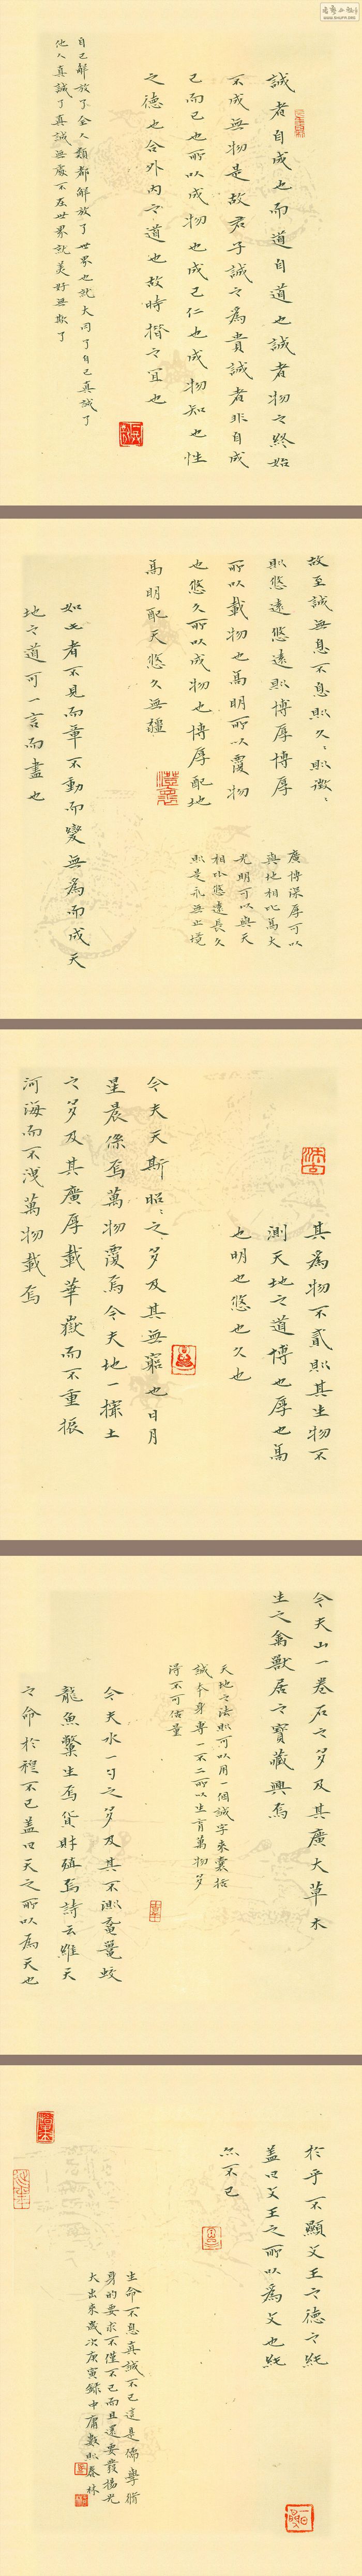 誠者自成也而道自道也誠者物之終始
不成無物是故君子誠之為貴誠者非自成
己而已也所以成物也成己仁也成物知也性
之德也合外內之道也故時措之宜也
自己解放了全人類都解放了世界也就大同了自己真誠了
他人真誠了真誠無處不在世界就美好無欺了
故至誠無息不息則久〻則徵〻
則悠遠悠遠則博厚博厚
所以載物也高明所以覆物
也悠久所以成物也博厚配地
高明配天悠久無疆
廣博深厚可以
與地相比高大
光明可以與天
相比悠遠長久
則是永無止境
如此者不見而章不動而變無為而成天
地之道可一言而盡也
其為物不貳則其生物不
測天地之道博也厚也高
也明也悠也久也
今夫天斯昭〻之多及其無窮也日月
星辰係焉萬物覆焉今夫地一撮土
之多及其廣厚載華嶽而不重振
河海而不洩萬物載焉
今夫山一卷石之多及其廣大草木
生之禽獸居之寶藏興焉
天地之法則可以用一個誠字來囊括
誠本身專一不二所以生育萬物多
得不可估量
今夫水一勺之多及其不測黿鼉蛟
龍魚鱉生焉貨財殖焉詩云維天
之命於穆不已蓋曰天之所以為天也
於乎不顯文王之德之純
蓋曰文王之所以為文也純
亦不已
生命不息真誠不已這是儒學修
身的要求不僅不已而且還要發揚光
大出來歲次庚寅錄中庸數則春林